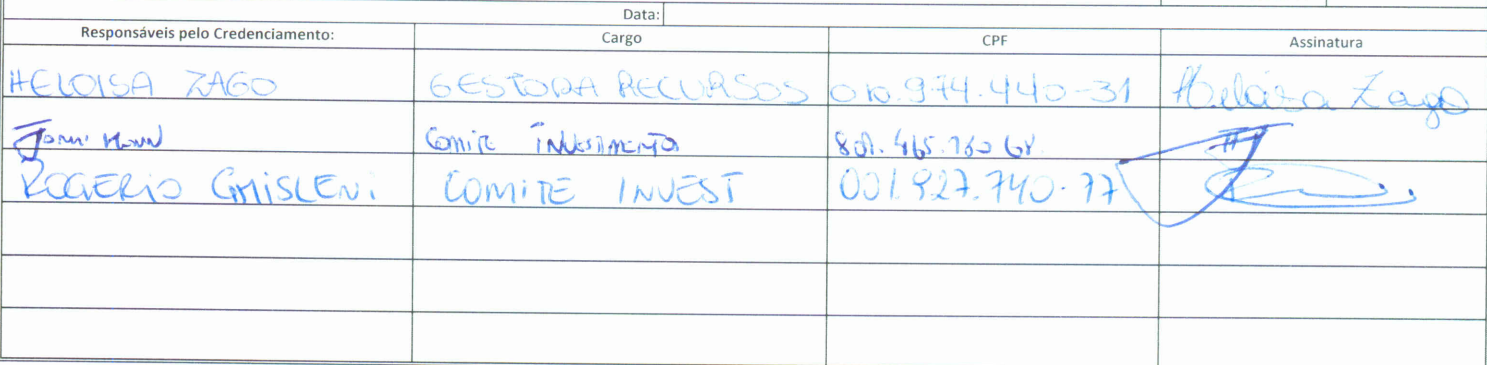 Data:
Responsáveis pelo Credenciamento: Cargo CPF Assinatura
HELOISA ZAGO GESTORA RECURSOS 010.974.440-31 Heloisa Zago
Comite INVESTIMENTO
ROGERIO GHISLENI COMITE INVEST 001.927.740-77